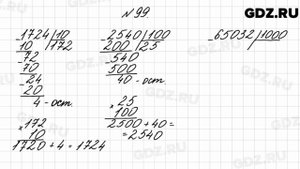 GDZ.RU
№ 99.
1724 | 10
10 | 172
72
70
24
20
4 - ост.
× 172
10
1720 + 4 = 1724
2540 | 100
200 | 25
540
500
40 - ост.
× 25
100
2500 + 40 =
= 2540
65032 | 1000
GDZ.RU
GDZ.RU